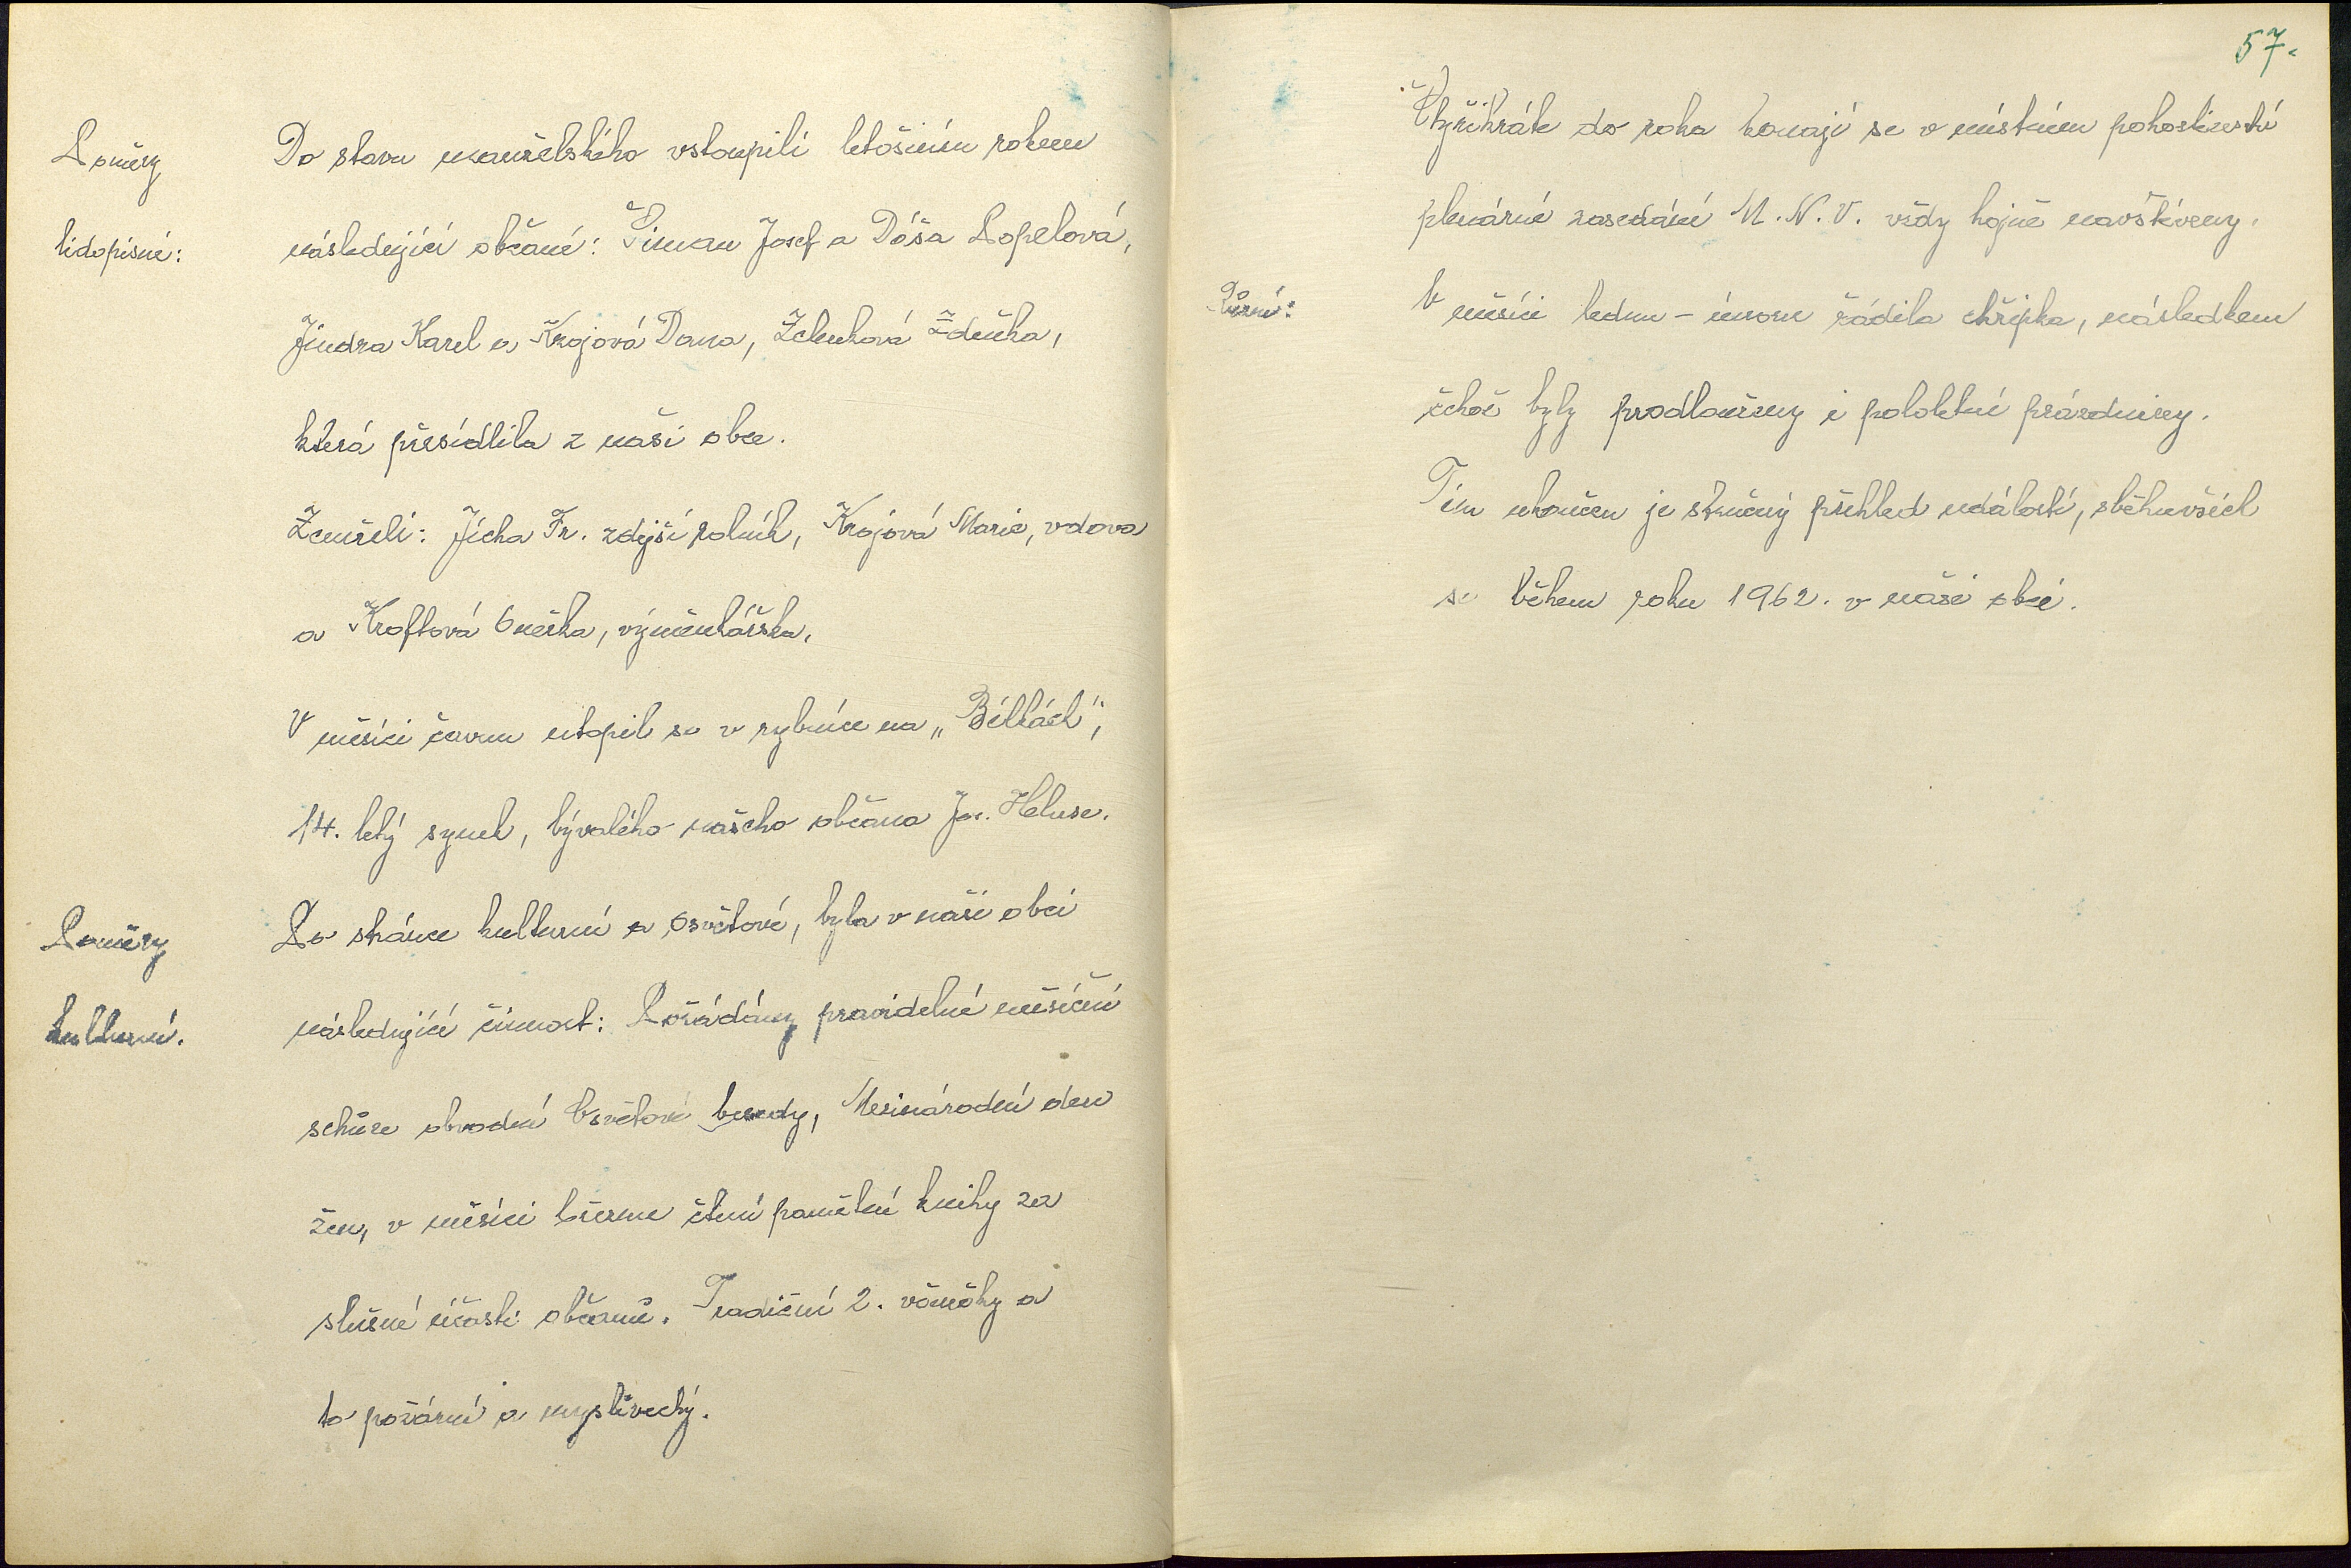 Poměry
lidopisné:
Do stavu manželského vstoupili letošním rokem
následující občané: Šiman Josef a Dáša Popelová,
Jindra Karel a Krojová Dana, Zelenková Zdeňka,
která přesídlila z naší obce.
Zemřeli: Jícha Fr. zdejší rolník, Krojová Marie, vdova
a Kroftová Anežka, výměnkářka.
V měsíci červnu utopil se v rybníce na „Bělkách",
14. letý synek, bývalého našeho občana Jos. Heluse.
Poměry
kulturní.
Po stránce kulturní a osvětové, byla v naší obci
následující činnost: Pořádány pravidelné měsíční
schůze obvodní Osvětové besedy, Mezinárodní den
žen, v měsíci březnu čtení pamětní knihy za
slušné účasti občanů. Tradiční 2. věnečky a
to požární a myslivecký.
57.
Čtyřikráte do roka konají se v místním pohostinství
plenární zasedání M.N.V. vždy hojně navštíveny.
Různé:
V měsíci lednu - únoru řádila chřipka, následkem
čehož byly prodlouženy i pololetní prázdniny.
Tím ukončen je stručný přehled událostí, sběhnuvších
se během roku 1962. v naší obci.